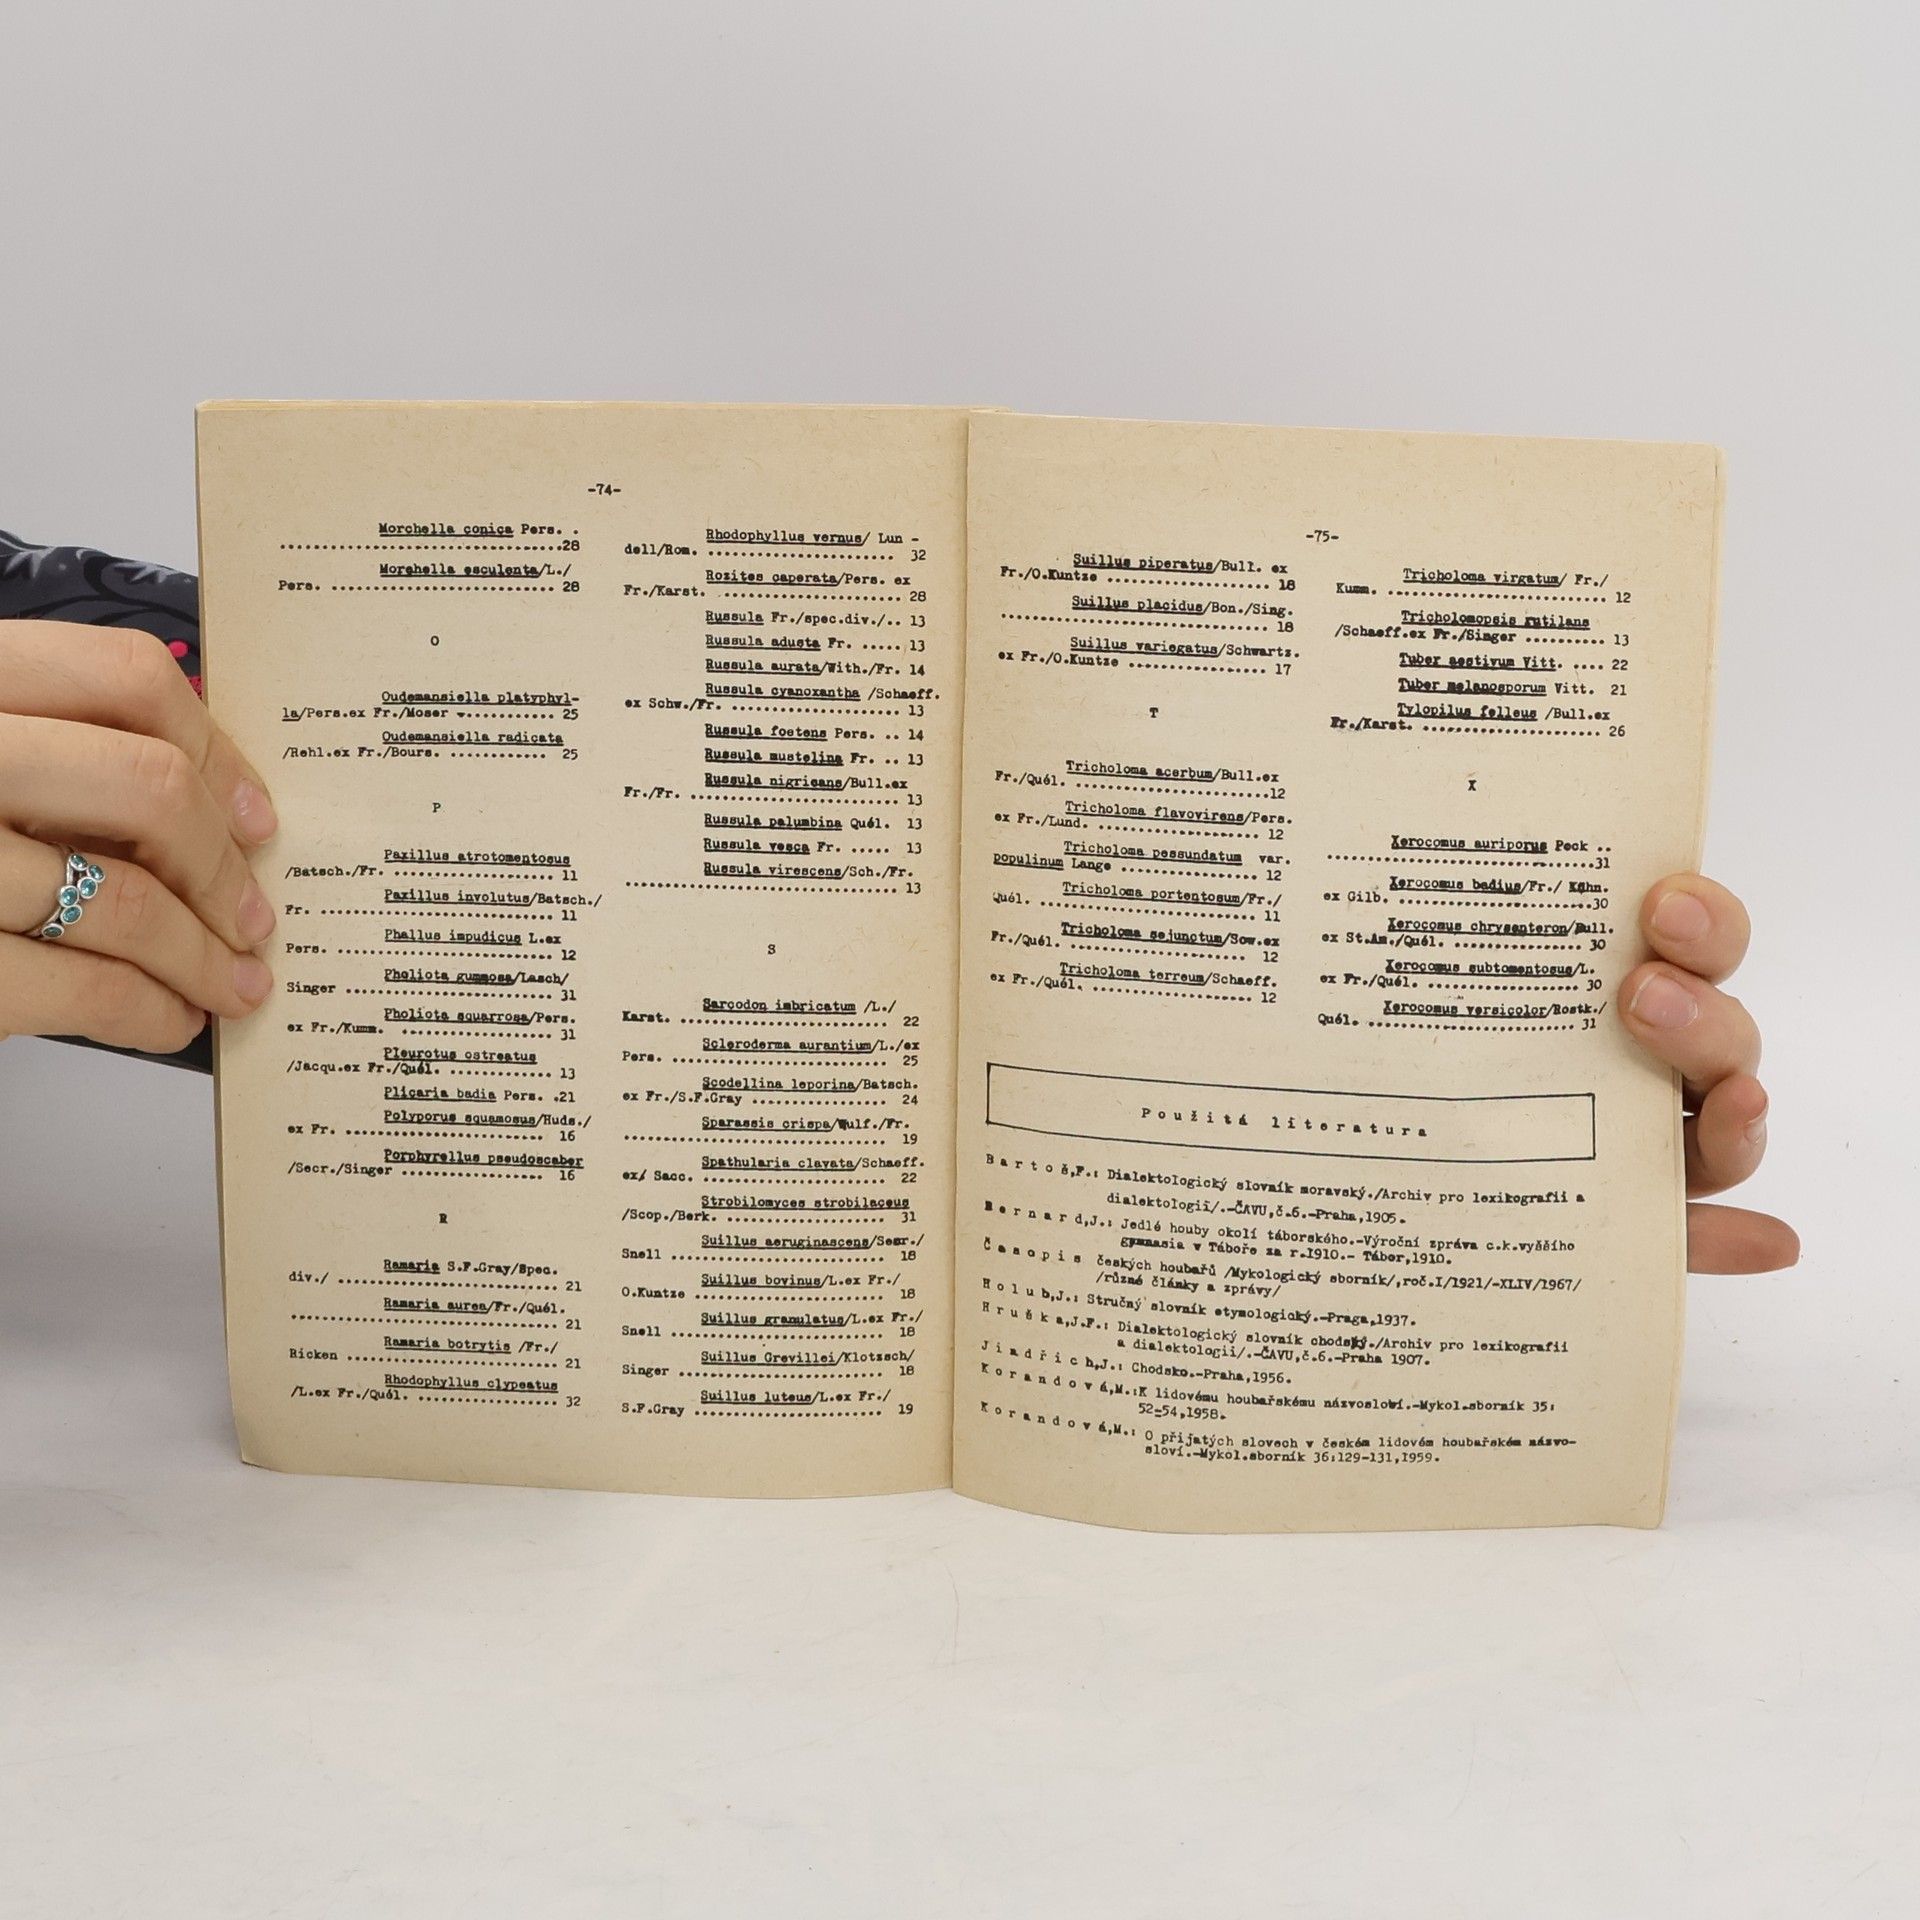 -74-
Morchella conica Pers. .
..............................28
Morchella esculenta/L./
Pers. ........................ 28
O
Oudemansiella platyphyl-
la/Pers.ex Fr./Moser ........... 25
Oudemansiella radicata
/Rehl.ex Fr./Bours. .......... 25
P
Paxillus atrotomentosus
/Batsch./Fr. ................. 11
Paxillus involutus/Batsch./
Fr. ......................... 11
Phallus impudicus L.ex
Pers. ....................... 12
Pholiota gummosa/Lasch/
Singer ...................... 31
Pholiota squarrosa/Pers.
ex Fr./Kumm. ................ 31
Pleurotus ostreatus
/Jacqu.ex Fr./Quél. ........... 13
Plicaria badia Pers. .21
Polyporus squamosus/Huds./
ex Fr. ..................... 16
Porphyrellus pseudoscaber
/Secr./Singer ............... 16
R
Ramaria S.F.Gray/Spec.
div./ ....................... 21
Ramaria aurea/Fr./Quél.
............................. 21
Ramaria botrytis /Fr./
Ricken ...................... 21
Rhodophyllus clypeatus
/L.ex Fr./Quél. .............. 32
Rhodophyllus vernus/ Lun -
dell/Rom. .................... 32
Rozites caperata/Pers. ex
Fr./Karst. ................... 28
Russula Fr./spec.div./.. 13
Russula adusta Fr. ..... 13
Russula aurata/With./Fr. 14
Russula cyanoxantha /Schaeff.
ex Schw./Fr. .................. 13
Russula foetens Pers. .. 14
Russula mustelina Fr. .. 13
Russula nigricans/Bull.ex
Fr./Fr. ...................... 13
Russula palumbina Quél. 13
Russula vesca Fr. ..... 13
Russula virescens/Sch./Fr.
............................. 13
S
Sarcodon imbricatum /L./
Karst. ...................... 22
Scleroderma aurantium/L./ex
Pers. ....................... 25
Scodellina leporina/Batsch.
ex Fr./S.F.Gray .............. 24
Sparassis crispa/Wulf./Fr.
............................. 19
Spathularia clavata/Schaeff.
ex/ Sacc. .................... 22
Strobilomyces strobilaceus
/Scop./Berk. ................. 31
Suillus aeruginascens/Secr./
Snell ....................... 18
Suillus bovinus/L.ex Fr./
O.Kuntze .................... 18
Suillus granulatus/L.ex Fr./
Snell ....................... 18
Suillus Grevillei/Klotzsch/
Singer ...................... 18
Suillus luteus/L.ex Fr./
S.F.Gray .................... 19
-75-
Suillus piperatus/Bull. ex
Fr./O.Kuntze ................. 18
Suillus placidus/Bon./Sing.
............................. 18
Suillus variegatus/Schwartz.
ex Fr./O.Kuntze .............. 17
T
Tricholoma acerbum/Bull.ex
Fr./Quél. .....................12
Tricholoma flavovirens/Pers.
ex Fr./Lund. ................. 12
Tricholoma pessundatum var.
populinum Lange .............. 12
Tricholoma portentosum/Fr./
Quél. ....................... 11
Tricholoma sejunctum/Sow.ex
Fr./Quél. .................... 12
Tricholoma terreum/Schaeff.
ex Fr./Quél. ................. 12
Tricholoma virgatum/ Fr./
Kumm. ....................... 12
Tricholomopsis rutilans
/Schaeff.ex Fr./Singer .......... 13
Tuber aestivum Vitt. .... 22
Tuber melanosporum Vitt. 21
Tylopilus felleus /Bull.ex
Fr./Karst. ................... 26
X
Xerocomus auriporus Peck ..
.............................31
Xerocomus badius/Fr./ Kühn.
ex Gilb. .....................30
Xerocomus chrysenteron/Bull.
ex St.Am./Quél. .............. 30
Xerocomus subtomentosus/L.
ex Fr./Quél. ................. 30
Xerocomus versicolor/Rostk./
Quél. ....................... 31
Použitá literatura
Bartoš,F.: Dialektologický slovník moravský./Archiv pro lexikografii a
dialektologii/.-ČAVU,č.6.-Praha,1905.
Bernard,J.: Jedlé houby okolí táborského.-Výroční zpráva c.k.vyššího
gymnasia v Táboře za r.1910.- Tábor,1910.
Časopis českých houbařů /Mykologický sborník/,roč.I/1921/-XLIV/1967/
/různé články a zprávy/
Holub,J.: Stručný slovník etymologický.-Praga,1937.
Hruška,J.F.: Dialektologický slovník chodský./Archiv pro lexikografii
a dialektologii/.-ČAVU,č.6.-Praha 1907.
Jindřich,J.: Chodsko.-Praha,1956.
Korandová,M.:K lidovému houbařskému názvosloví.-Mykol.sborník 35:
52-54,1958.
Korandová,M.: O přijatých slovech v českém lidovém houbařském názvo-
sloví.-Mykol.sborník 36:129-131,1959.